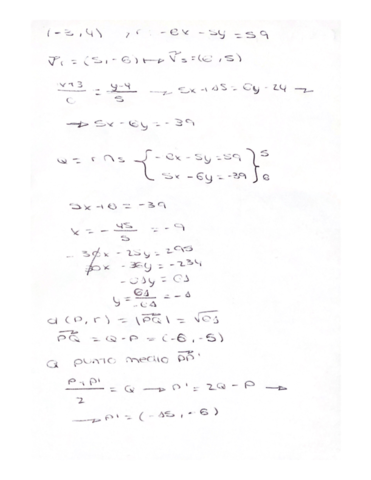 (-3,4) , r: -6x-5y=59
v⃗r=(5,-6) → v⃗s=(6,5)
x+3/6 = y-4/5 → 5x+15=6y-24 →
→ 5x-6y=-39
Q=r∩s { -6x-5y=59 } 5
{ 5x-6y=-39 } 6
5x+6=-39
x=-45/5=-9
-30x-25y=295
30x-36y=-234
-61y=61
y=61/-61=-1
d(P,r)=|PQ|=√61
PQ=Q-P=(-6,-5)
Q punto medio PP'
P+P'/2=Q → P'=2Q-P →
→ P'=(-15,-6)